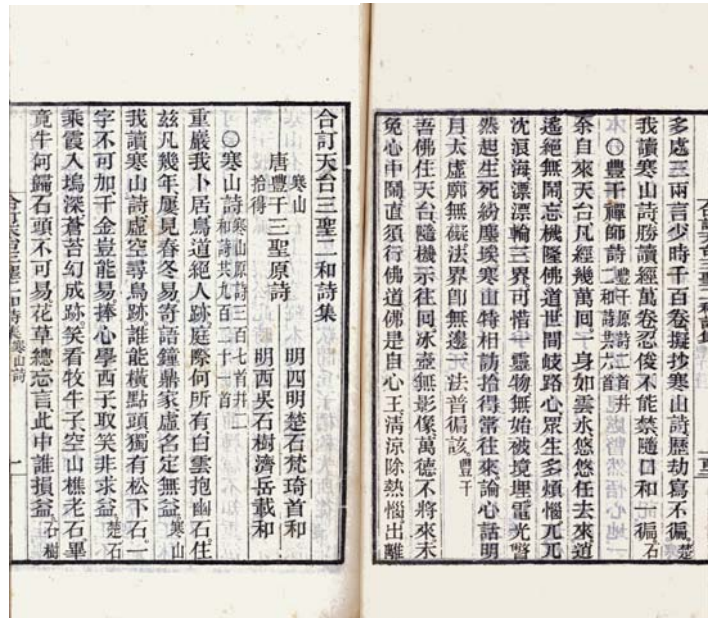 多處三兩言少時千百卷擬抄寒山詩歷劫寫不徧。楚
我讀寒山詩勝讀經萬卷忍俊不能禁隨口和一徧。石
○豐干禪師詩豐干原詩二首并二和詩共六首
余自來天台凡經幾萬回一身如雲水悠悠任去來逍
遙絕無鬧忘機隆佛道世間岐路心眾生多煩惱兀兀
沈浪海漂漂輪三界可惜一靈物無始被境埋電光瞥
然起生死紛塵埃寒山特相訪拾得常往來論心話明
月太虛廓無礙法界即無邊一法普徧該。豐干
吾佛住天台隨機示往回冰壺無影像萬德不將來未
免心中鬧直須行佛道佛是自心王清涼除熱惱出離
合訂天台三聖二和詩集
唐豐干寒山拾得三聖原詩
明四明楚石梵琦首和
明西吳石樹濟岳載和
○寒山詩寒山原詩三百七首并二和詩共九百二十一首
重巖我卜居鳥道絕人跡庭際何所有白雲抱幽石住
茲凡幾年屢見春冬易寄語鐘鼎家虛名定無益。寒山
我讀寒山詩虛空尋鳥跡誰能橫點頭獨有松下石一
字不可加千金豈能易捧心學西子取笑非求益。楚石
乘霞入塢深蒼苔幻成跡笑看牧牛子空山樵老石畢
竟牛何歸石頭不可易花草總忘言此中誰損益。石樹
合訂天台三聖二和詩集寒山詩
一